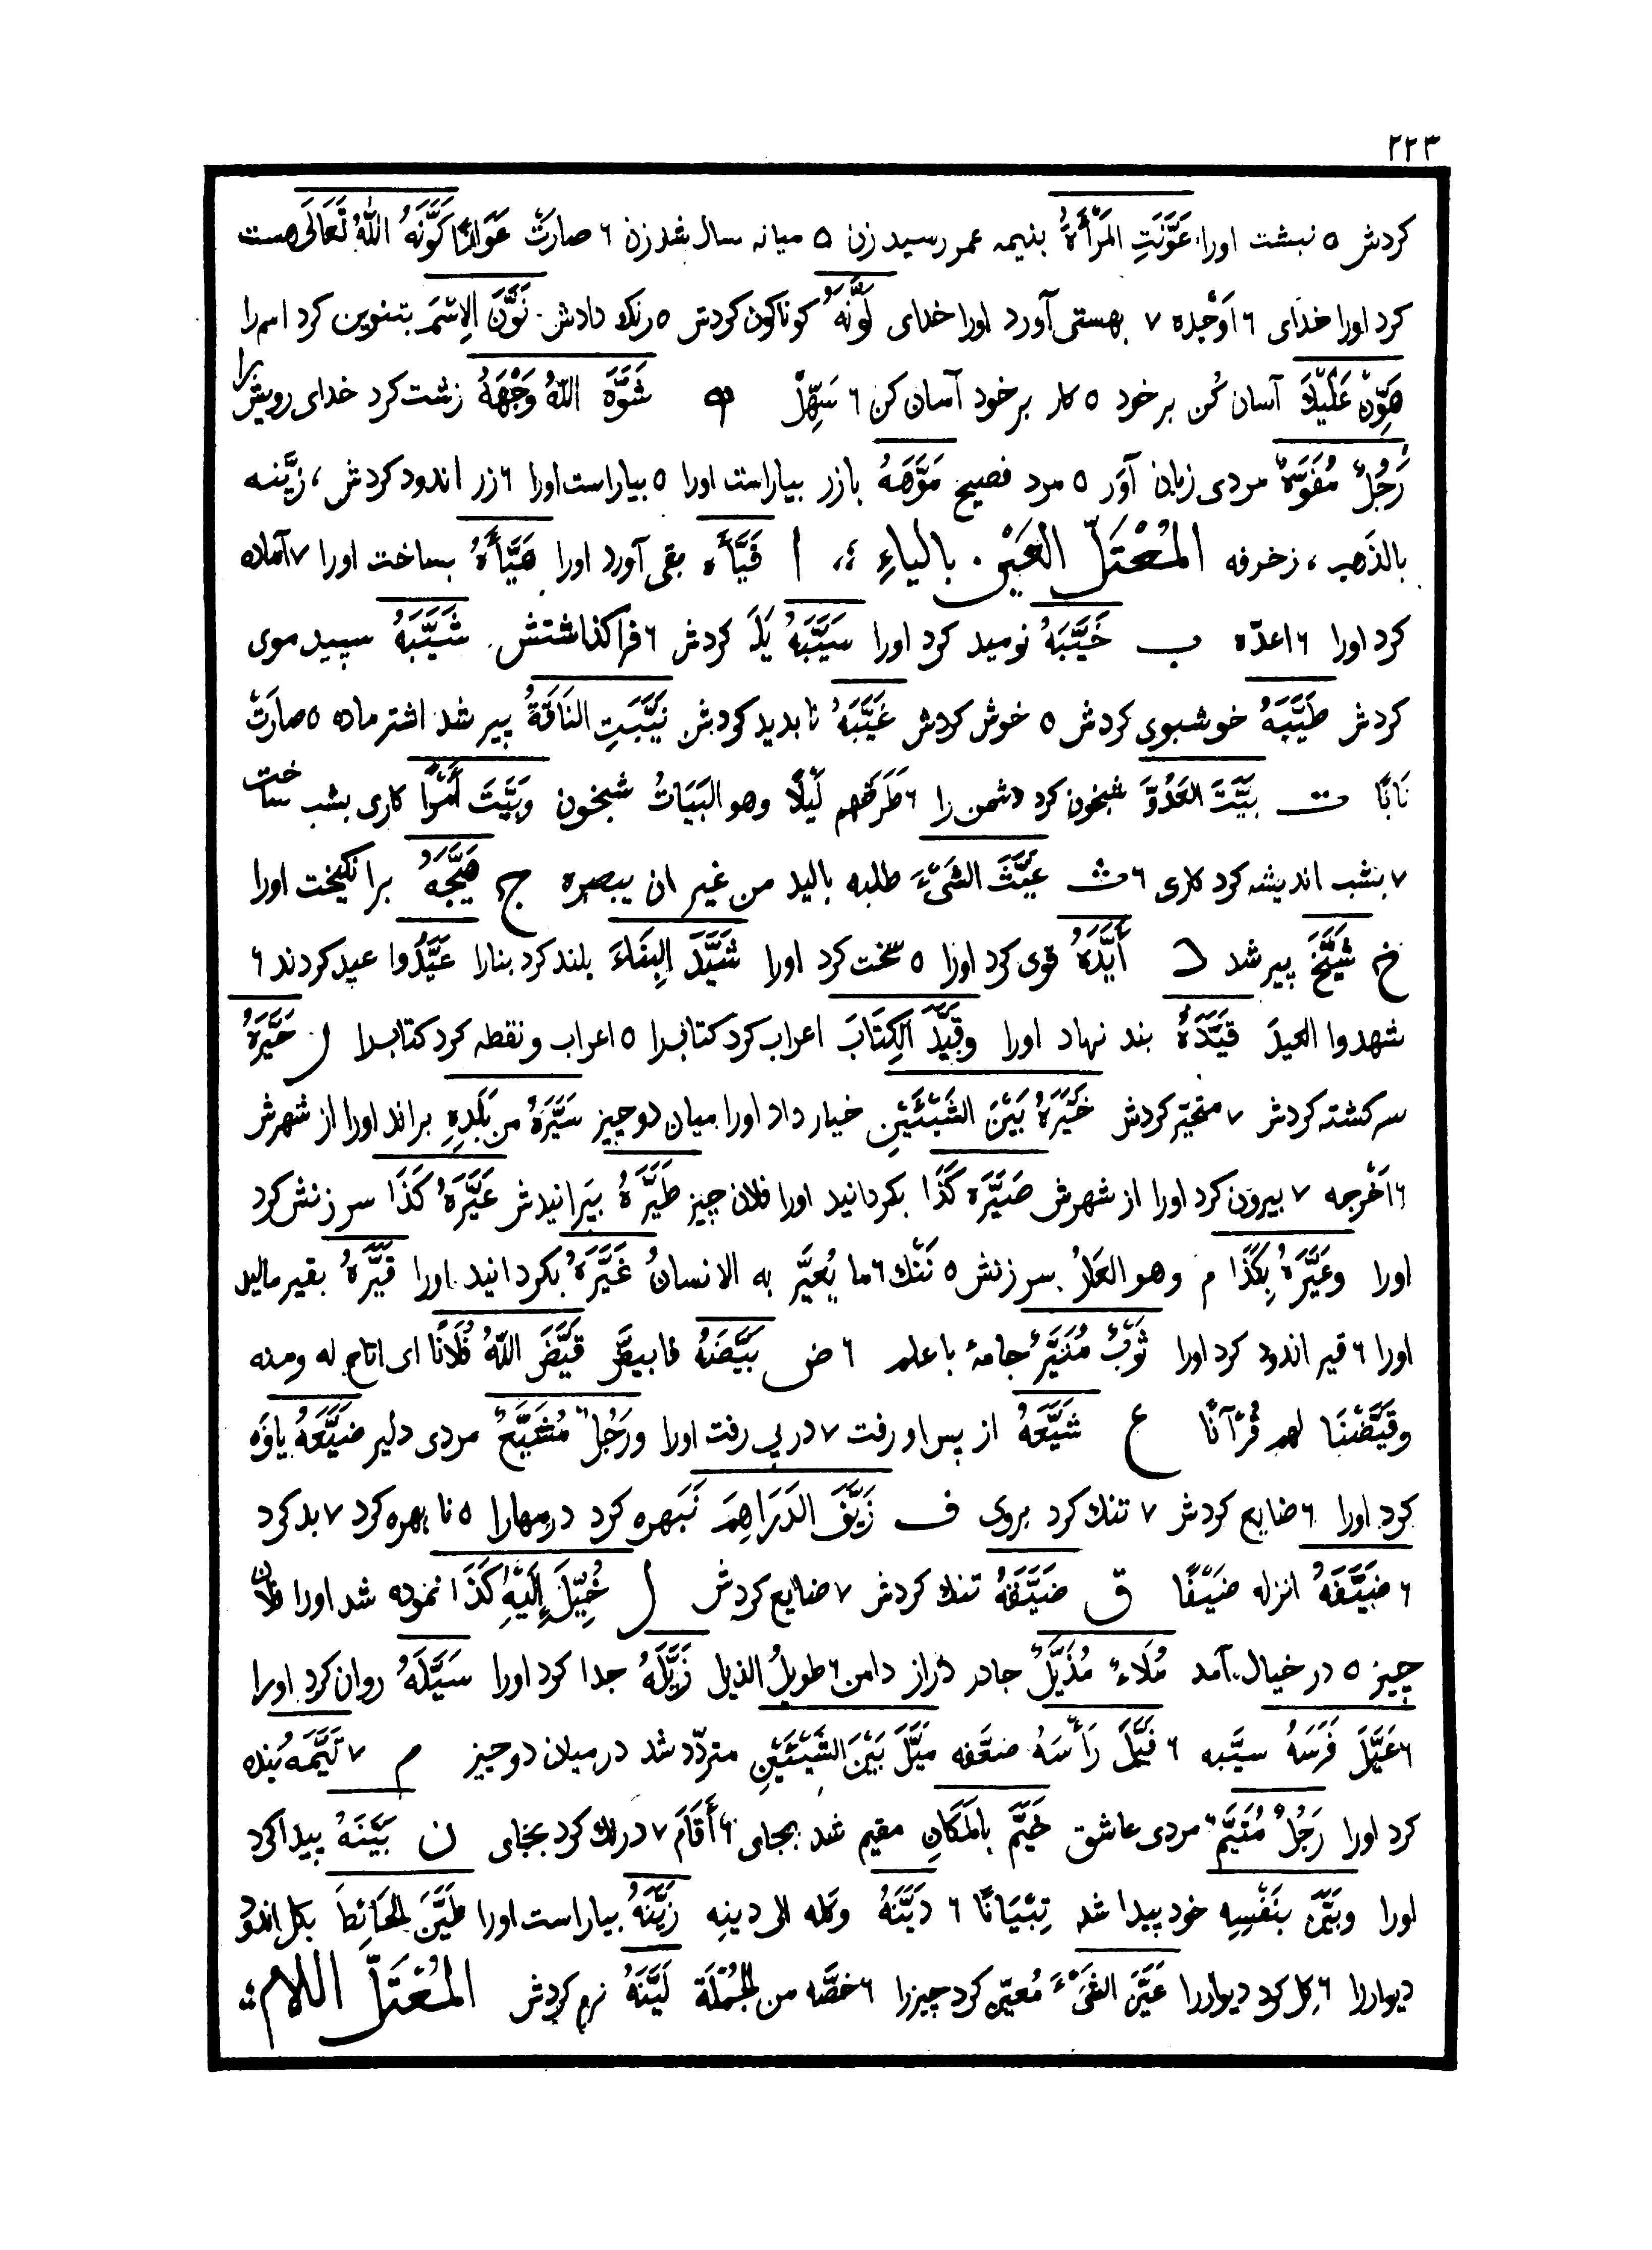 ٢٢٣
كردش ٥ نبشت اورا عَوَّنَتِ المَرْأَةُ بنيمه عمر رسيد زن ٥ ميانه سال شد زن ٦ صارَتْ عَوَانًا كَوَّنَهُ اللّٰهُ تَعَالَى هست
كرد اورا خدَاى ٦ اَوْجده ٧ بهستى آورد اورا خداى لَوَّنَهُ كوناكون كردش ٥ رنك دادش نَوَّنَ الاِسْمَ بتنوين كرد اسم را
هَوِّنْ عَلَيْكَ آسان كُن بر خود ٥ كار بر خود آسان كن ٦ سَهِّلْ ه شَوَّهَ اللّٰهُ وَجْهَهُ زشت كرد خداى رويش را
رَجُلٌ مُفَوَّهٌ مردى زبان آوَر ٥ مرد فصيح مَوَّهَهُ بازر بياراست اورا ٥ بياراست اورا ٦ زر اندود كردش ، زيَّنه
بالذهب ، زخرفه المُعْتَلّ العَيْن بالياءِ ا قَيَّأَه بقى آورد اورا هَيَّأَهُ بساخت اورا ٧ آماده
كرد اورا ٦ اعدّه ب خَيَّبَهُ نوميد كرد اورا سَيَّبَهُ يَله كردش ٦ فرا كذاشتش شَيَّبَهُ سپيد موى
كردش طَيَّبَهُ خوشبوى كردش ٥ خوش كردش غَيَّبَهُ نابديد كردش نَيَّبَتِ النَاقَةُ پير شد اشتر ماده ٥ صارَتْ
نَابًا ت بَيَّتَ العَدُوَّ شبخون كرد دشمن را ٦ طَرَقهم لَيْلًا وهو البَيَاتُ شبخون وبَيَّتَ أَمْرًا كارى بشب ساخت
٧ بشب انديشه كرد كارى ٦ ث عَيَّثَ الشَىْءَ طلبه باليد من غير ان يبصره ج هَيَّجَهُ برانكيخت اورا
خ شَيَّخَ پير شد د أَيَّدَهُ قوى كرد اورا ٥ سخت كرد اورا شَيَّدَ البِنَاءَ بلند كرد بنارا عَيَّدُوا عيد كردند ٦
شهدوا العيدَ قَيَّدَهُ بند نهاد اورا وقَيَّدَ الكِتَابَ اعراب كرد كتابرا ٥ اعراب ونقطه كرد كتابرا ر حَيَّرَهُ
سركشته كردش ٧ متحيّر كردش خَيَّرَهُ بَيْنَ الشَيْئَيْنِ خيار داد اورا ميان دو چيز سَيَّرَهُ من بَلَدِهِ براند اورا از شهرش
٦ اَخْرجه ٧ بيرون كرد اورا از شهرش صَيَّرَه كَذَا بكردانيد اورا فلان چيز طَيَّرَهُ بپَرانيدش عَيَّرَهُ كَذَا سرزنش كرد
اورا وعَيَّرَهُ بِكَذَا م وهو العَارُ سرزنش ٥ نَنْك ٦ ما يُعيَّر به الانسانُ غَيَّرَهُ بكردانيد اورا قَيَّرَهُ بقير ماليد
اورا ٦ قير اندود كرد اورا ثَوْبٌ مُنَيَّرٌ جامهٔ با علم ٦ ض بَيَّضَهُ فابيضَّ قَيَّضَ اللّٰهُ فُلَانًا اى اتاح له ومنه
وقَيَّضْنَا لهم قُرْآنًا ع شَيَّعَهُ از پس او رفت ٧ در پى رفت اورا ورَجُلٌ مُشَيَّعٌ مردى دلير ضَيَّعَهُ ياوَه
كرد اورا ٦ ضايع كردش ٧ تنك كرد بروى ف زَيَّفَ الدَرَاهِمَ نَبَهره كرد درمهارا ٥ نا بهره كرد ٧ بد كرد
٦ ضَيَّفَهُ انزله ضَيْفًا ق ضَيَّقَهُ تنك كردش ٧ ضايع كردش ل خُيِّلَ إِلَيْهِ كَذَا نموده شد اورا فلان
چيز ٥ در خيال آمد مُلَاءٌ مُذَيَّلٌ چادر دراز دامن ٦ طويلُ الذيل زَيَّلَهُ جدا كرد اورا سَيَّلَهُ روان كرد اورا
٦ عَيَّلَ فَرَسَهُ سيَّبه ٦ فَيَّلَ رَأْسَهُ ضعَّفه مَيَّلَ بَيْنَ الشَيْئَيْنِ متردّد شد در ميان دو چيز م ٧ تَيَّمَهُ بَنده
كرد اورا رَجُلٌ مُتَيَّمٌ مردى عاشق خَيَّمَ بالمَكَانِ مقيم شد بجاى ٦ أَقَامَ ٧ درنك كرد بجاى ن بَيَّنَهُ پيدا كرد
اورا وبَيَّنَ بنَفْسِهِ خود پيدا شد تِبْيَانًا ٦ دَيَّنَهُ وكله الى دينِهِ زَيَّنَهُ بياراست اورا طَيَّنَ الحَائِطَ بكل اندود
ديواررا ٦ كِل كرد ديواررا عَيَّنَ الشَىْءَ مُعيّن كرد چيزرا ٦ خصَّه من الجُمْلَة لَيَّنَهُ نرم كردش المُعْتَلّ اللام